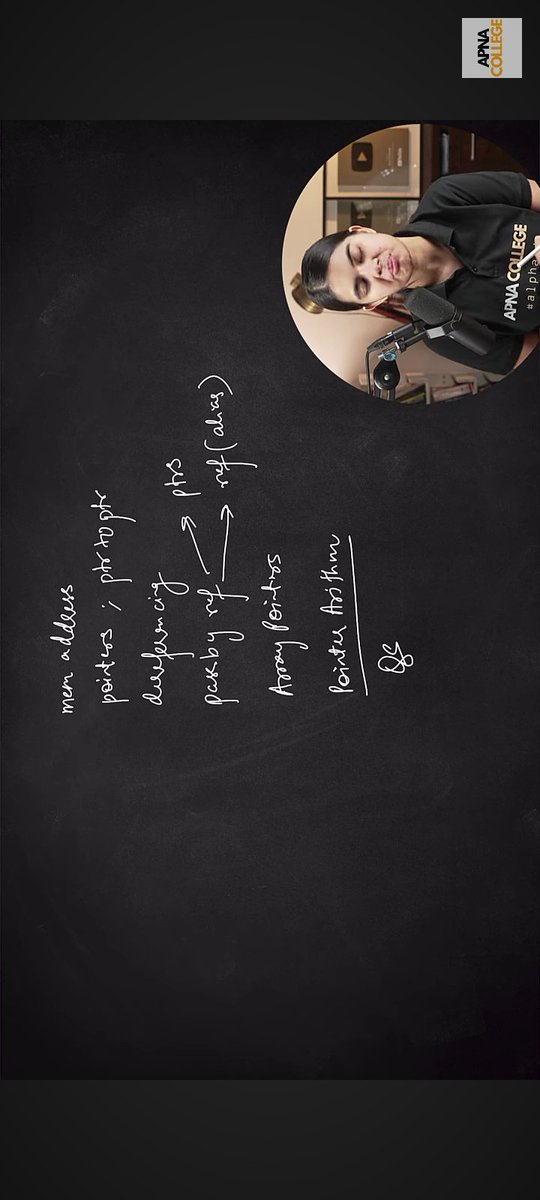 APNA
COLLEGE
APNA COLLEGE
#alpha
mem address
pointers ; ptr to ptr
dereferencing
pass by ref → ptrs
→ ref (alias)
Array Pointers
Pointer Arithm
Qs